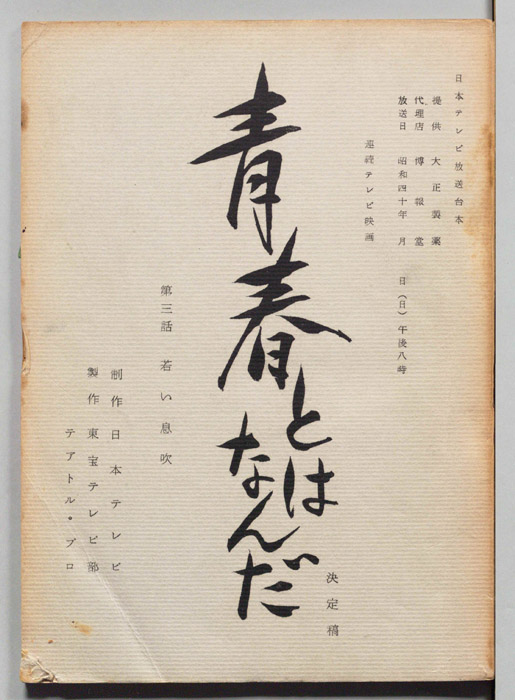 日本テレビ放送台本
提供 大正製薬
代理店 博報堂
放送日 昭和四十年 月 日(日)午後八時
連続テレビ映画
青春とはなんだ
決定稿
第三話 若い息吹
制作 日本テレビ
製作 東宝テレビ部
テアトル・プロ